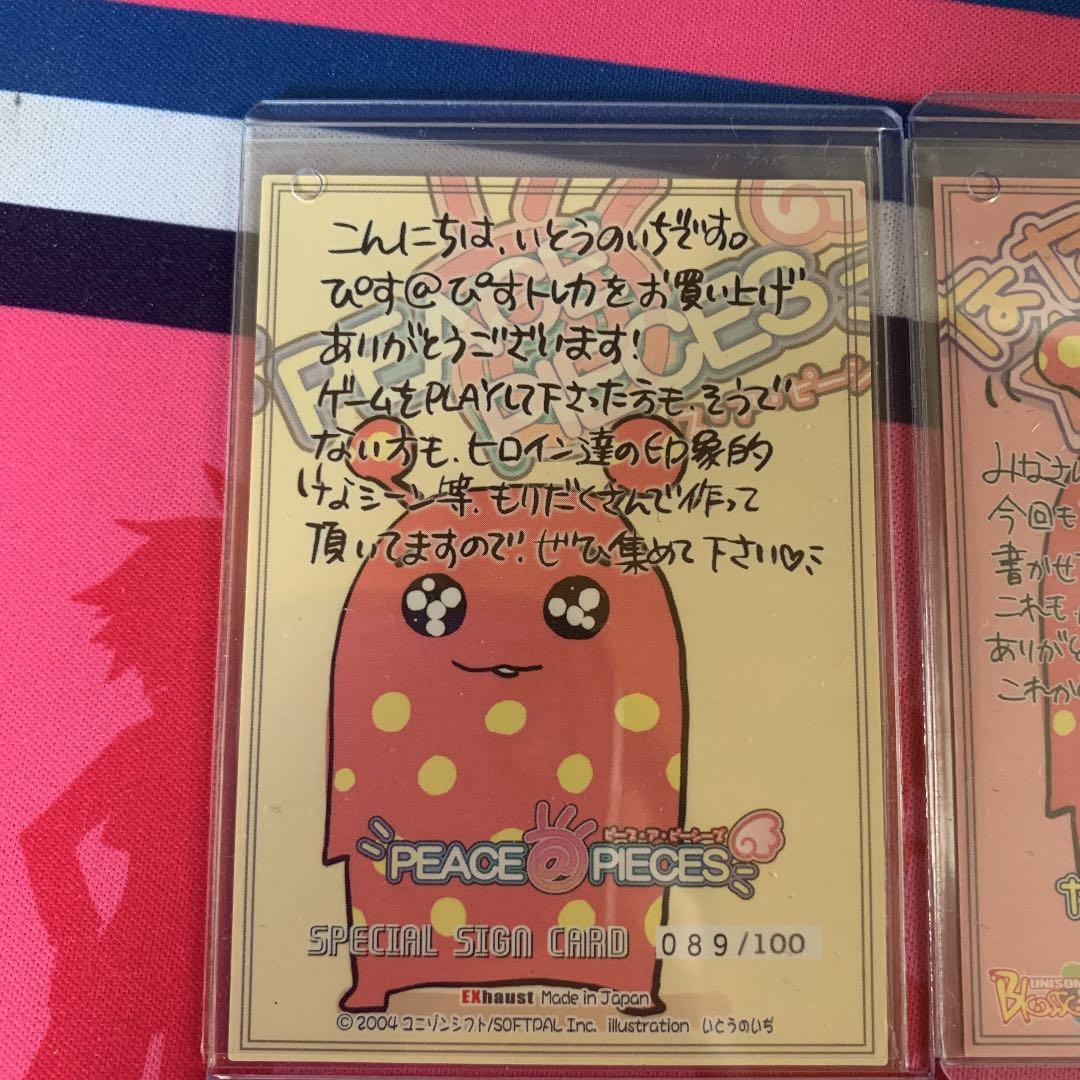 こんにちは、いとうのいぢです。
ぴす@ぴすトレカをお買い上げ
ありがとうございます!
ゲームをPLAYして下さった方も、そうで
ない方も、ヒロイン達の印象的
なシーン等、もりだくさんで作って
頂いてますので、ぜひ集めて下さい♡
ピース・ア・ピーシーズ
PEACE@PIECES
SPECIAL SIGN CARD 089/100
EXhaust Made in Japan
©2004 ユニゾンシフト/SOFTPAL Inc. illustration いとうのいぢ
みなさん
今回も
書かせ
これも
ありがと
これか
UNISON